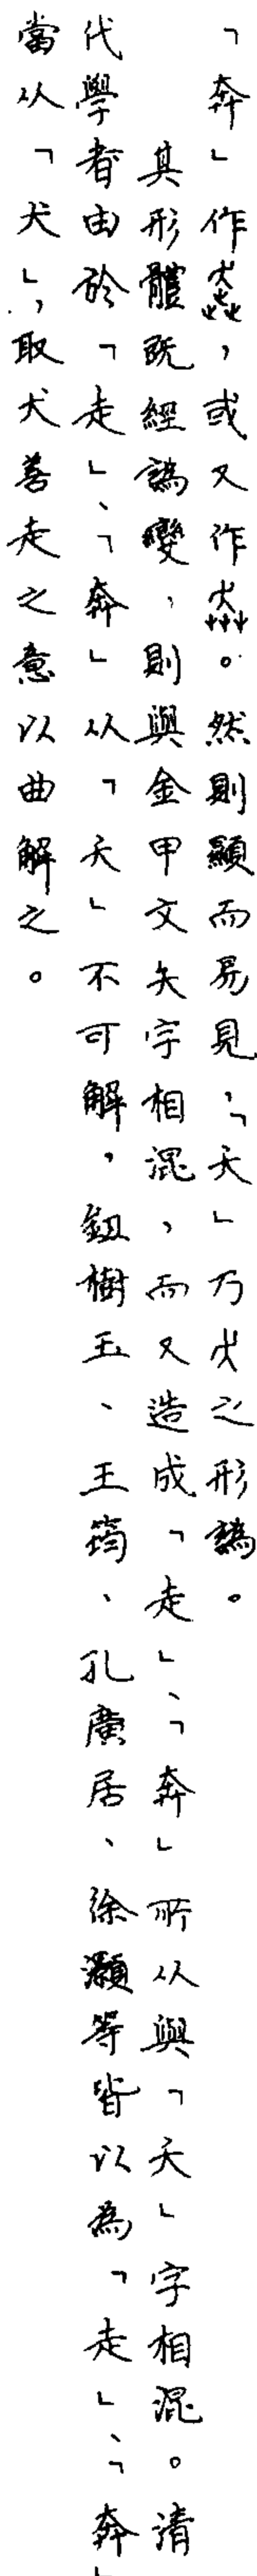 「奔」作，或又作。然則顯而易見，「夭」乃之形譌。
其形體既經譌變，則與金甲文夨字相混，而又造成「走」、「奔」所从與「夭」字相混。清
代學者由於「走」、「奔」从「夭」不可解，鈕樹玉、王筠、孔廣居、徐灝等皆以為「走」、「奔」
當从「犬」，取犬善走之意以曲解之。